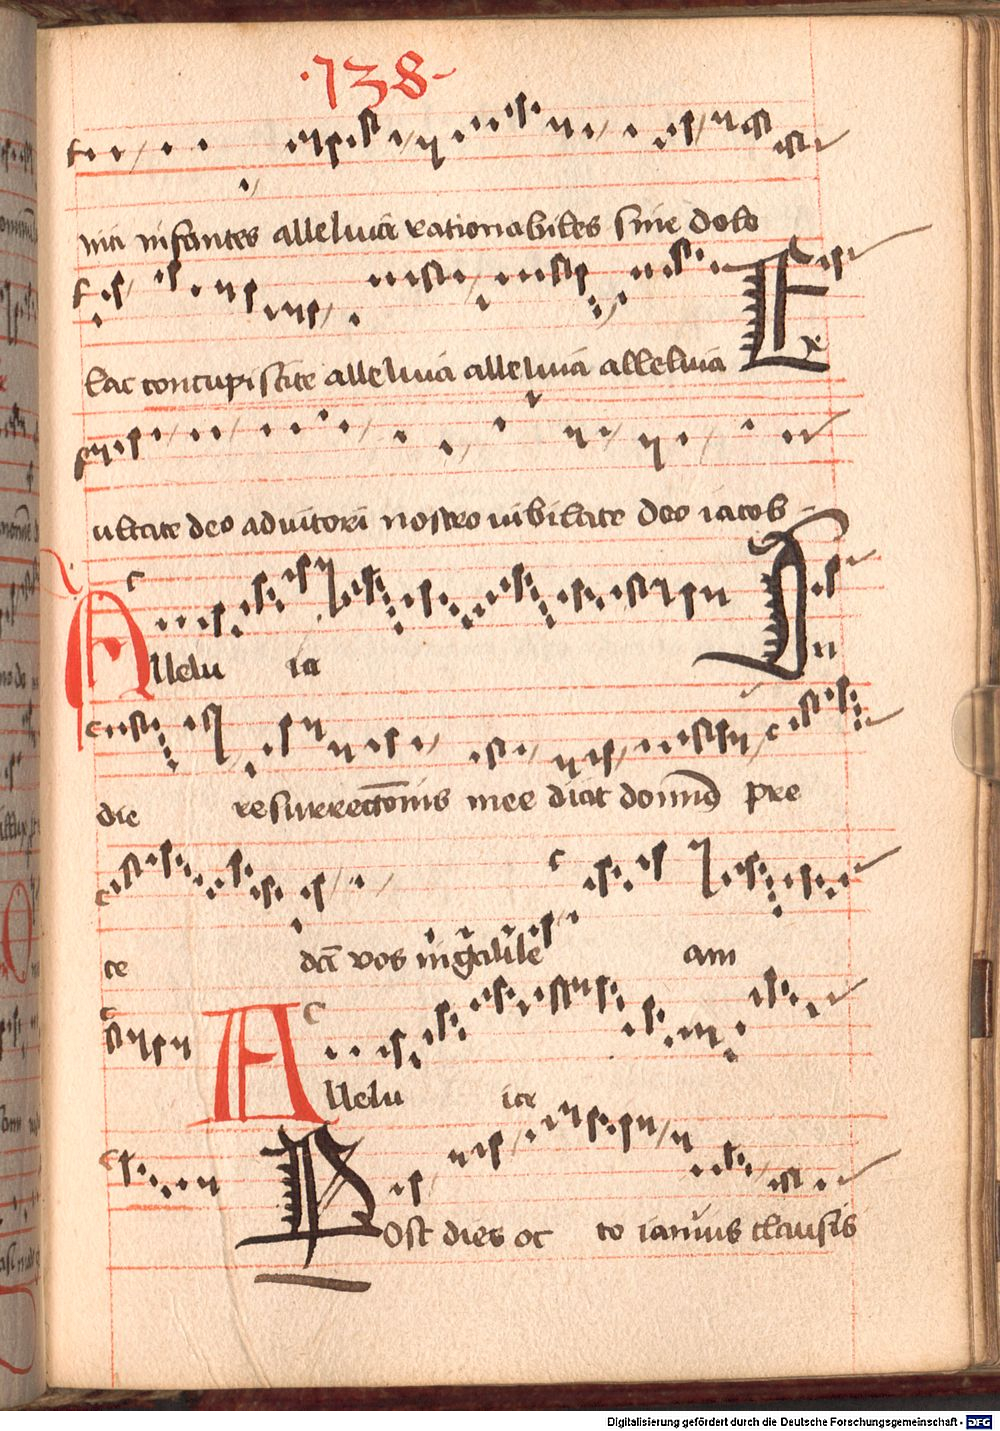 ·138·
niti infantes alleluia rationabiles sine dolo
lac concupiscite alleluia alleluia alleluia Ex
ultate deo adiutori nostro iubilate deo iacob
Allelu ia In
die resurrectōnis mee dicit domīꝰ pre
ce dā vos in galile am
Allelu ia
Post dies oc to ianuis clausis
Digitalisierung gefördert durch die Deutsche Forschungsgemeinschaft - DFG